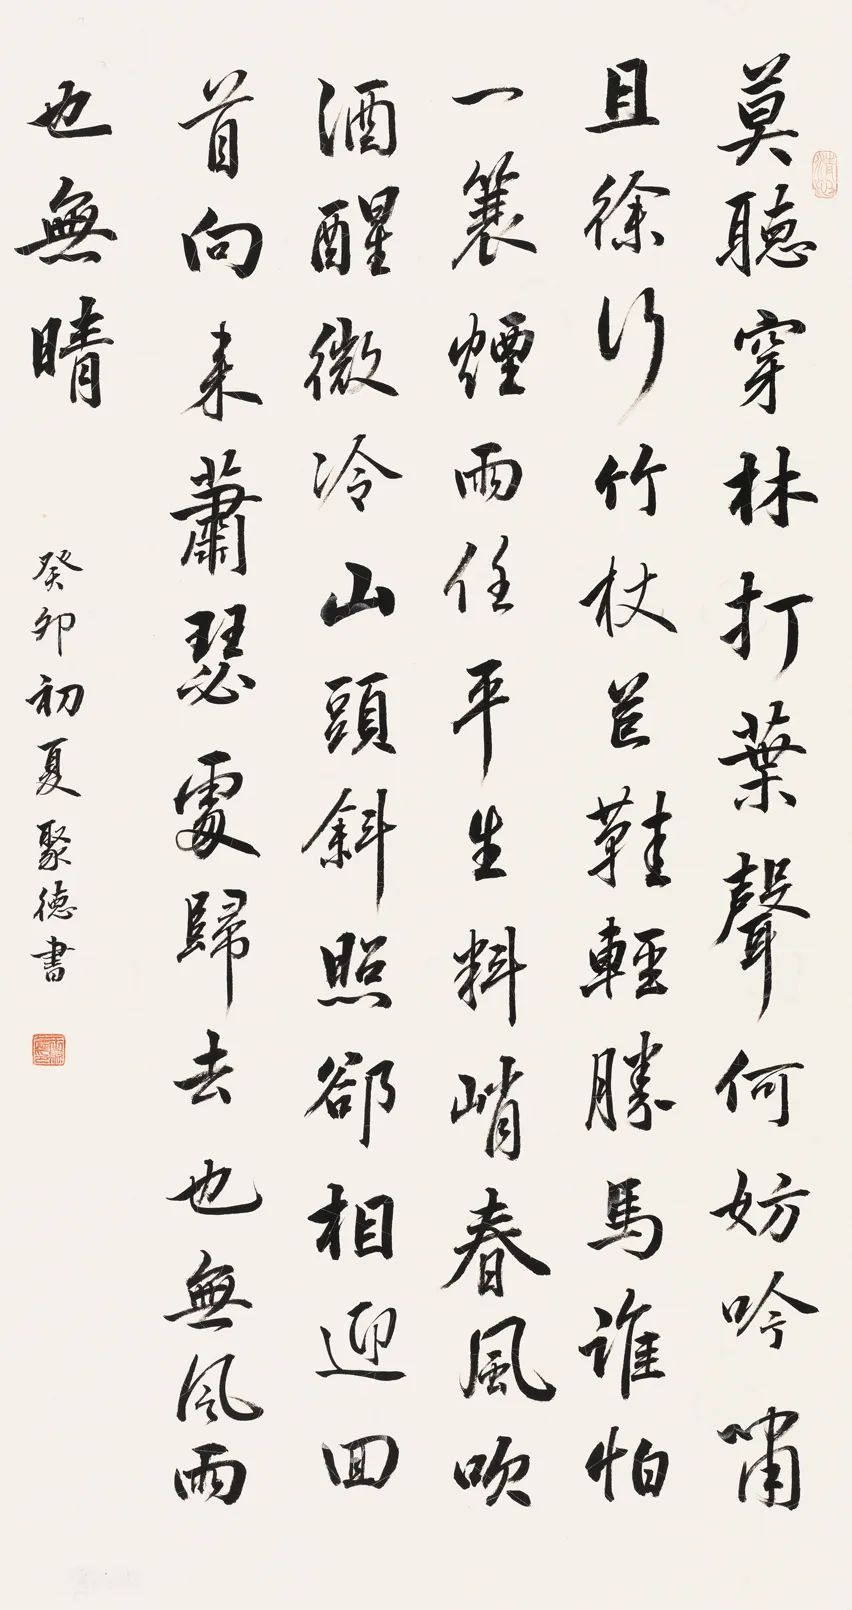 莫聽穿林打葉聲何妨吟嘯
且徐行竹杖芒鞋輕勝馬誰怕
一蓑煙雨任平生料峭春風吹
酒醒微冷山頭斜照郤相迎回
首向来蕭瑟處歸去也無風雨
也無晴
癸卯初夏聚德书